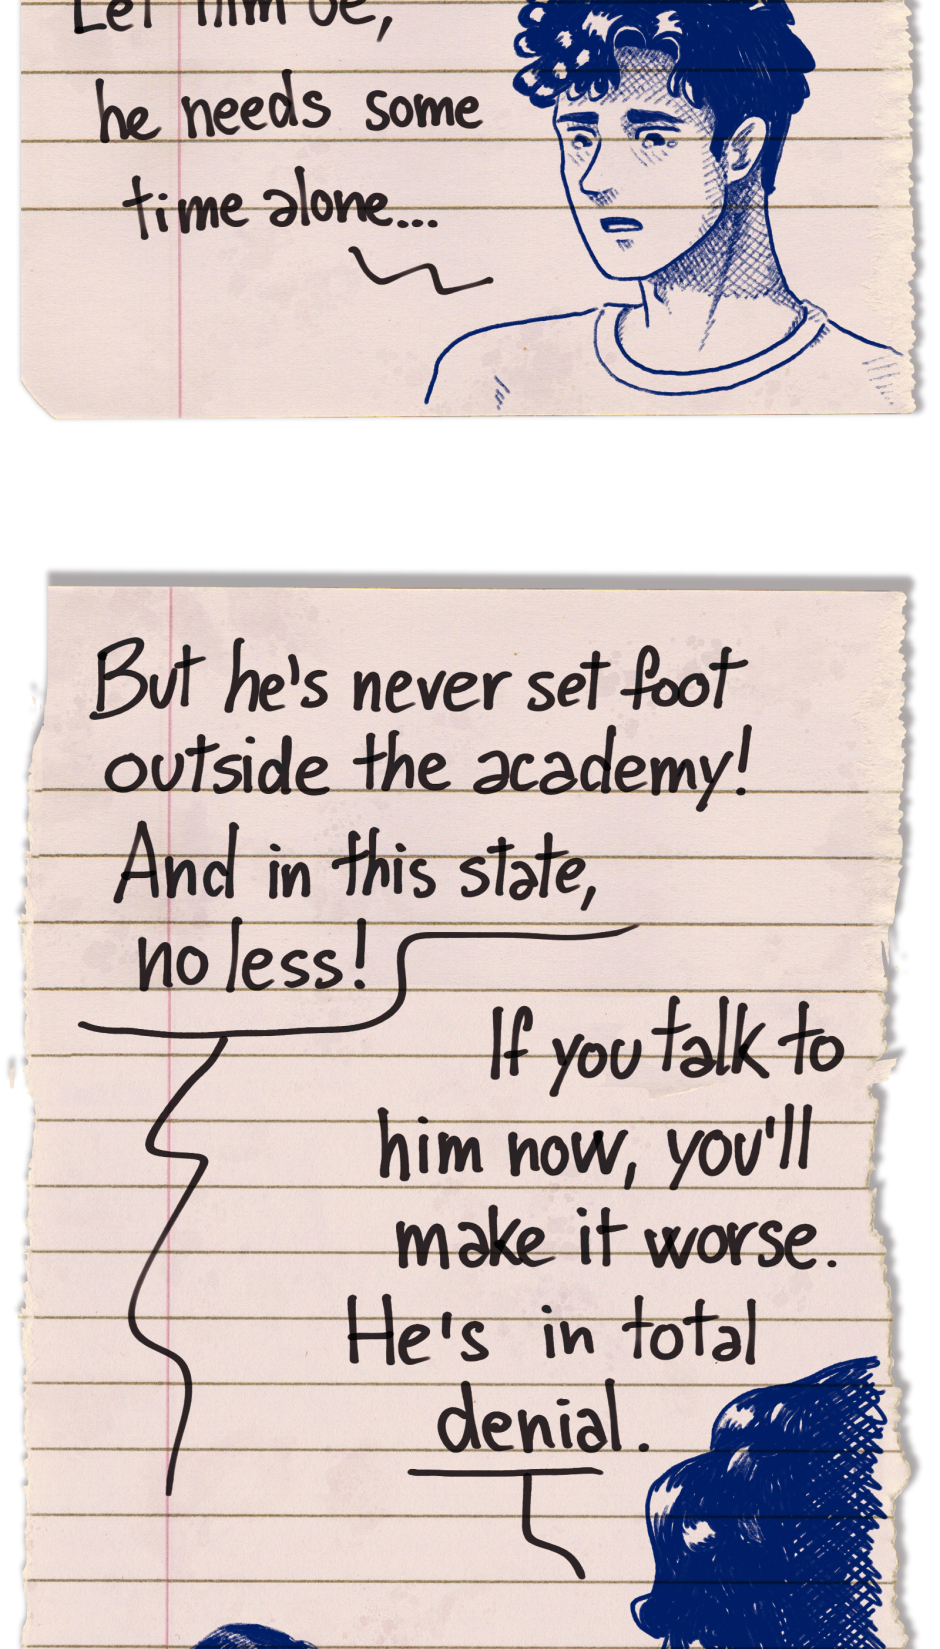 Let him be,
he needs some
time alone...
But he's never set foot
outside the academy!
And in this state,
no less!
If you talk to
him now, you'll
make it worse.
He's in total
denial.